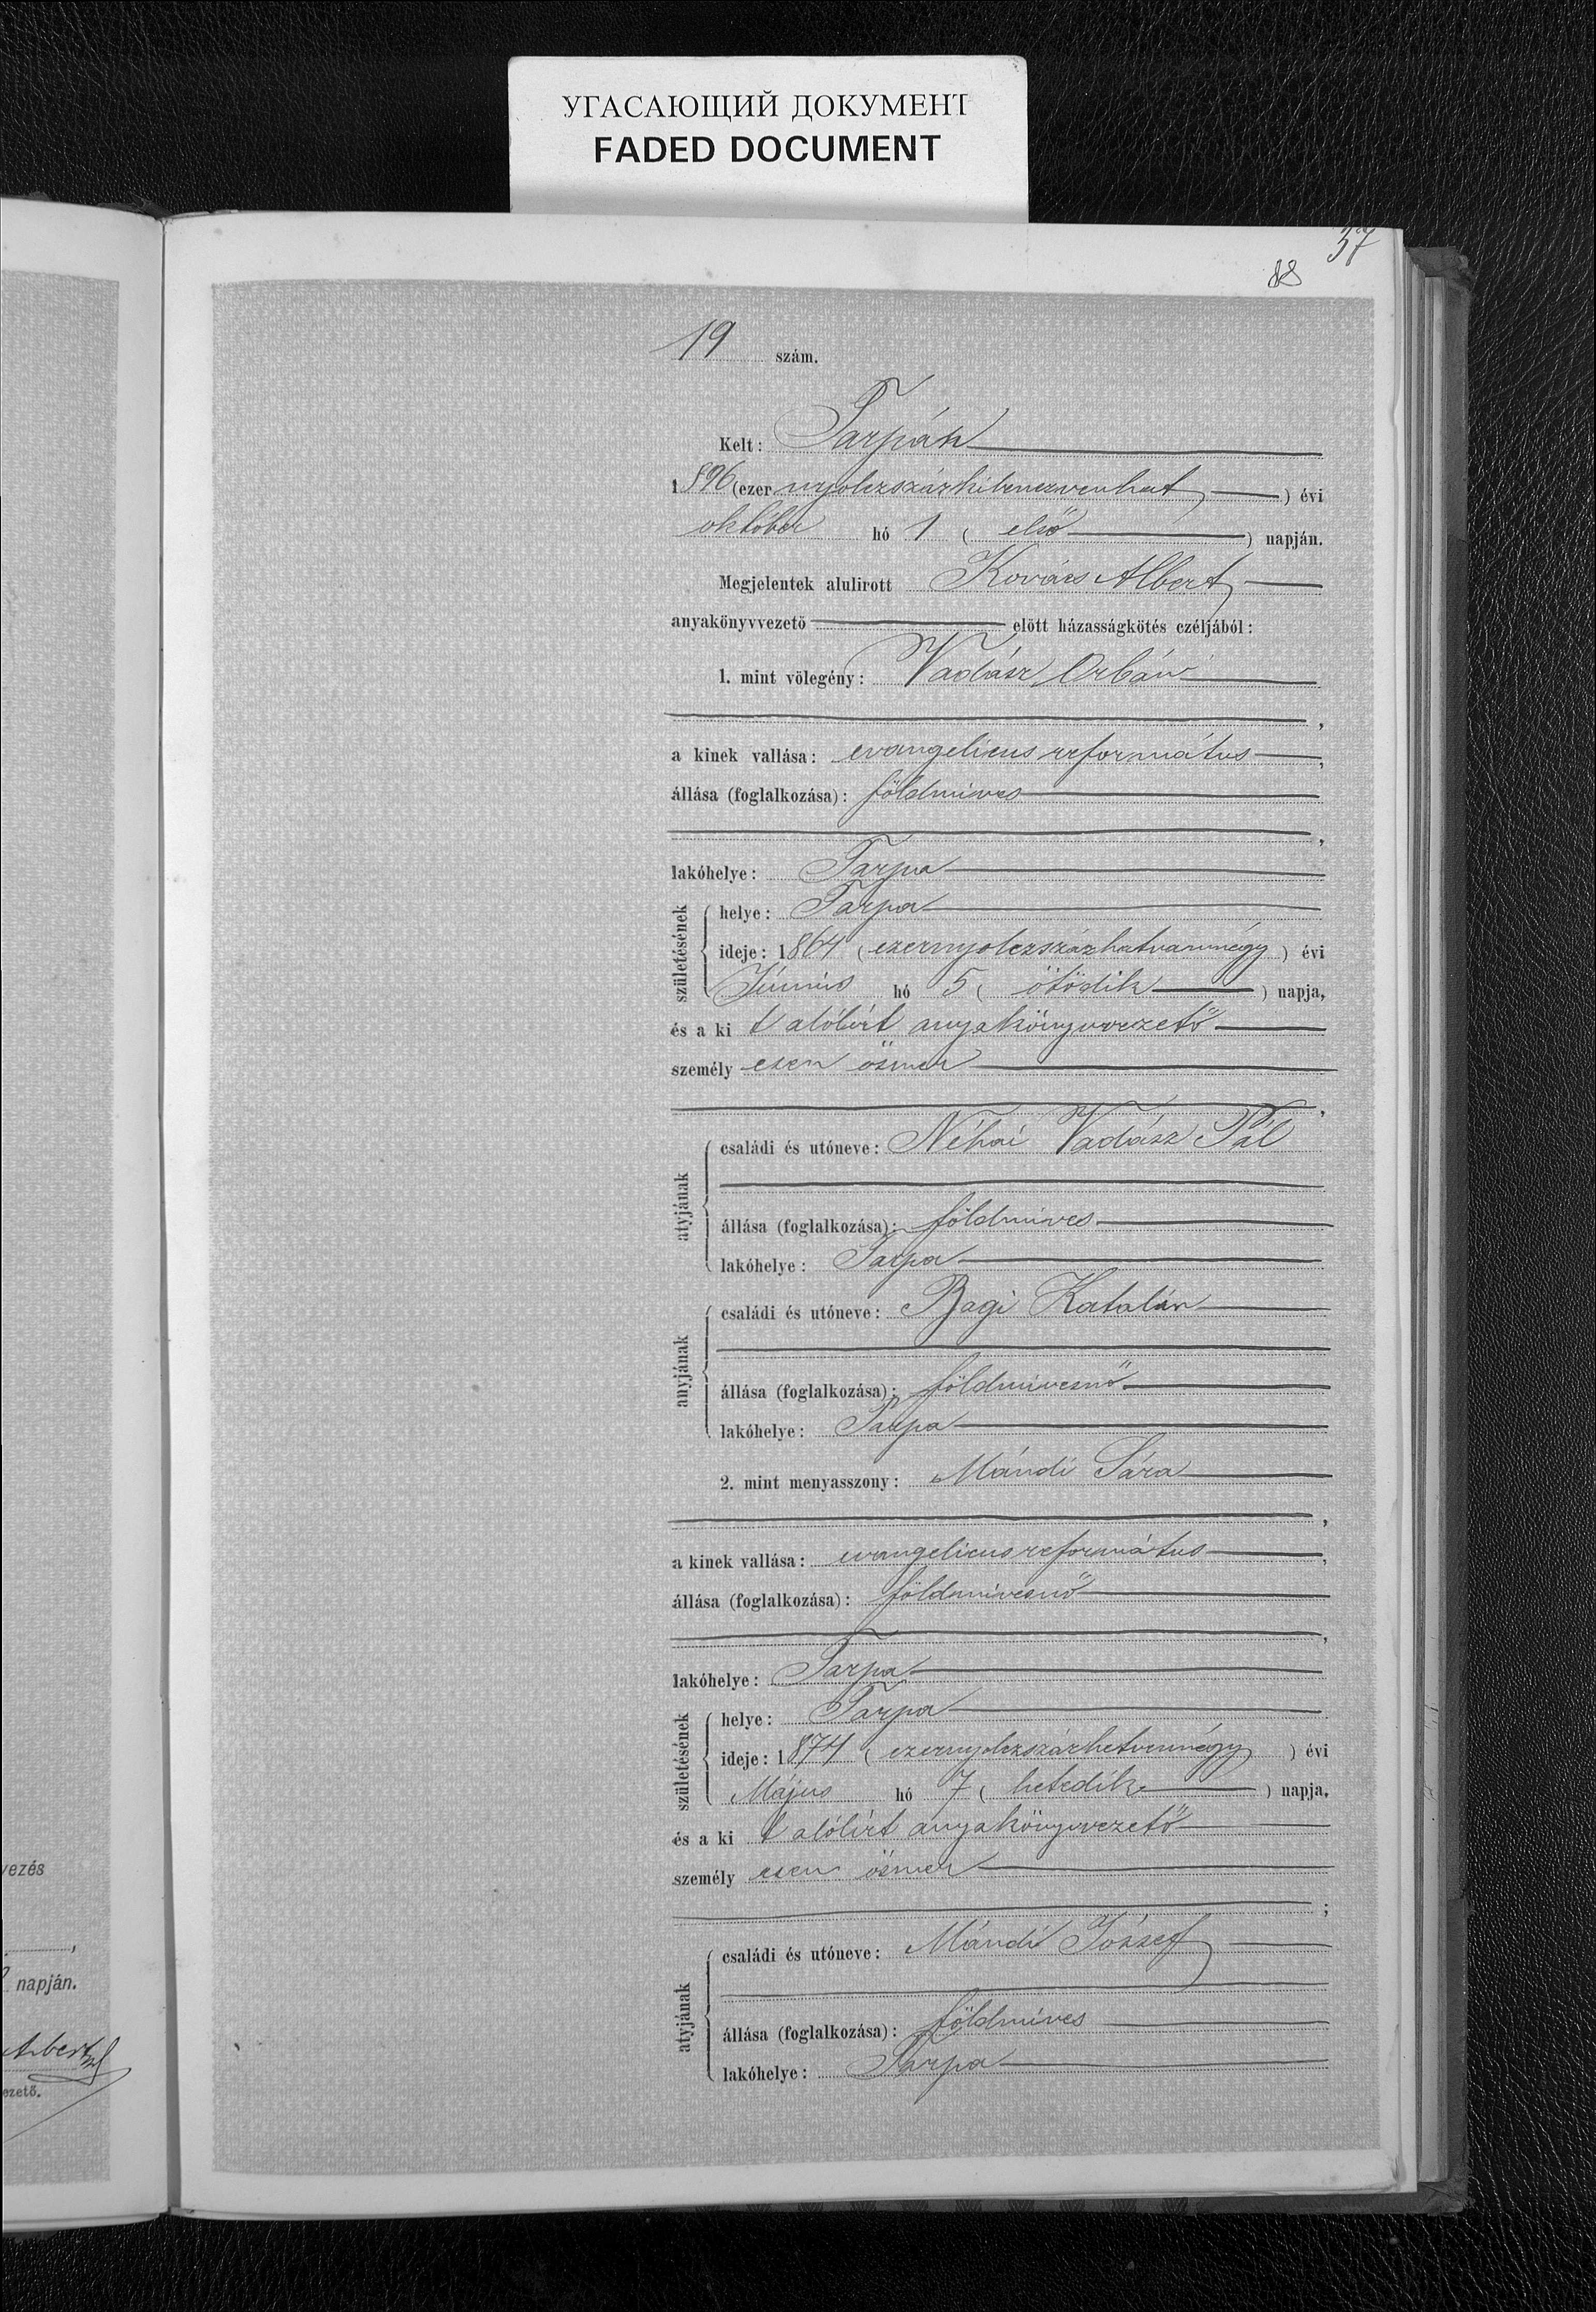 УГАСАЮЩИЙ ДОКУМЕНТ
FADED DOCUMENT
37
88
19 szám.
Kelt: Tarpán
1896 (ezer nyolczszázkilenczvenhat) évi
október hó 1 (első) napján.
Megjelentek alulirott Kovács Albert
anyakönyvvezető előtt házasságkötés czéljából:
1. mint völegény: Vadász Orbán
,
a kinek vallása: evangelicus református,
állása (foglalkozása): földmives
,
lakóhelye: Tarpa
születésének
helye: Tarpa
ideje: 1864 (ezernyolczszázhatvannégy) évi
Június hó 5 (ötödik) napja,
és a ki t alólirt anyakönyvvezető
személy esen ösmer
,
atyjának
családi és utóneve: Néhai Vadász Pál
állása (foglalkozása): földmives
lakóhelye: Tarpa
anyjának
családi és utóneve: Bagi Katalin
állása (foglalkozása): földmivesnő
lakóhelye: Tarpa
2. mint menyasszony: Mándi Sára
,
a kinek vallása: evangelicus református,
állása (foglalkozása): földmivesnő
,
lakóhelye: Tarpa
születésének
helye: Tarpa
ideje: 1874 (ezernyolczszázhetvennégy) évi
Május hó 7 (hetedik) napja,
és a ki t alólirt anyakönyvvezető
személy esen ösmer
;
atyjának
családi és utóneve: Mándi József
állása (foglalkozása): földmives
lakóhelye: Tarpa
vezés
,
napján.
Albert
ezető.